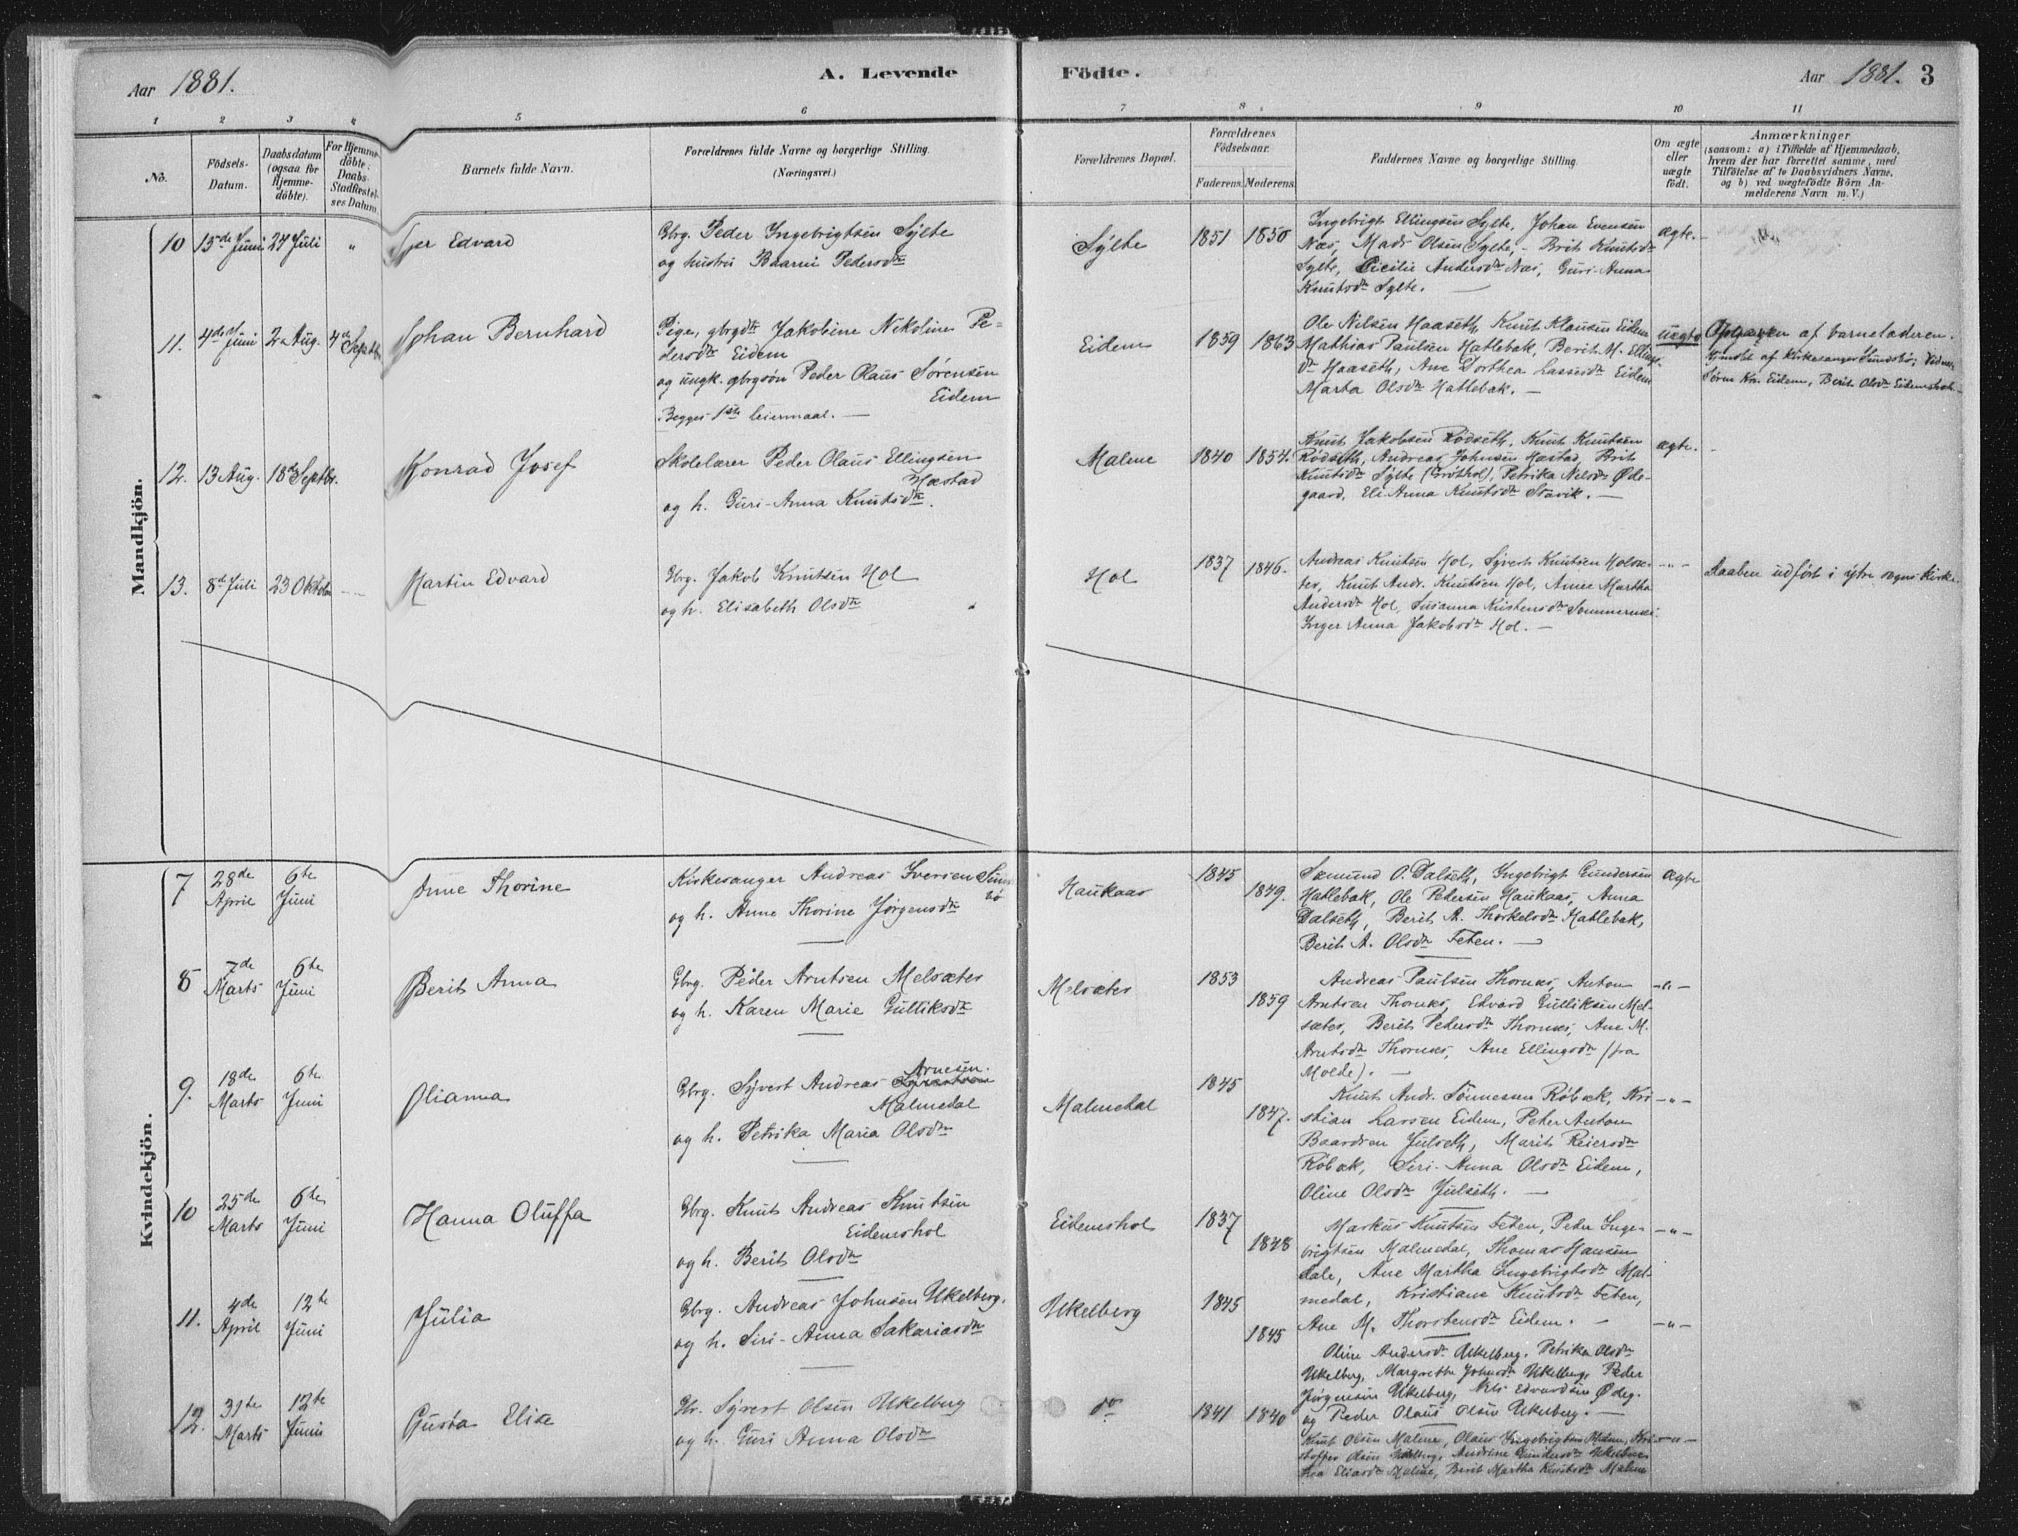 Aar 1881.
A. Levende
Födte.
Aar 1881. 3
1 2 3 4 5 6 7 8 9 10 11
No.
Födsels-
Datum.
Daabsdatum
(ogsaa for
Hjemme-
döbte).
For Hjemme-
döbte:
Daabs-
Stadfæstel-
ses Datum.
Barnets fulde Navn.
Forældrenes fulde Navne og borgerlige Stilling.
(Næringsvei.)
Forældrenes Bopæl.
Forældrenes
Födselsaar.
Faderens. Moderens.
Faddernes Navne og borgerlige Stilling.
Om ægte
eller
uægte
födt.
Anmærkninger
(saasom: a) i Tilfælde af Hjemmedaab,
hvem der har forrettet samme, med
Tilföielse af to Daabsvidners Navne,
og b) ved uægtefödte Börn An-
melderens Navn m. V.)
Mandkjön.
10 15de Juni 24 Juli " Iver Edvard
Gbrg. Peder Ingebrigtsen Sylte
og hustru Baarni Pedersdtr
Sylte 1851 1850
Ingebrigt Ellingsen Sylte, Johan Evensen
Næs, Mads Olsen Sylte, - Brit Knutsdtr
Sylte, Cicilie Andersdtr Næs, Guri-Anna
Knutsdtr Sylte. —
ægte.
11. 4de Juni 2 Aug. 4de Septbr Johan Bernhard
Pige, gbrgdtr Jakobine Nikoline Pe-
dersdtr Eidem
og ungk. gbrgsøn Peder Olaus Sørensen
Eidem
Begges 1ste leiermaal. —
Eidem 1859 1863
Ole Nilsen Haaseth, Knut Klausen Eidem
Mathias Paulsen Hatlebak, Berit M. Ellings
dtr Haaseth, Ane Dorthea Lassesdtr Eidem
Marta Olsdtr Hatlebak. —
uægte
Opgaven af barnefaderen.
Hjmdbt af Kirkesanger Sundsbö; Vidner
Sören Kn. Eidem, Berit Olsdtr Eidemshol.
12. 13 Aug. 18de Septbr. Konrad Josef
Skolelærer Peder Olaus Ellingsen
Hæstad
og h. Guri-Anna Knutsdtr.
Malme 1840 1854.
Knut Jakobsen Rödseth, Knut Knutsen
Rödseth, Andreas Johnsen Hæstad, Brit
Knutsdtr Sylte (Gröthol), Petrika Nilsdtr Øde-
gaard, Eli Anna Knutsdtr Stavik. —
ægte.
13. 8de Juli 23 Oktober Martin Edvard
Gbrg. Jakob Knutsen Hol
og h. Elisabeth Olsdtr
Hol 1837 1846.
Andreas Knutsen Hol, Syvert Knutsen Holsæ-
ter, Knut Andr. Knutsen Hol, Anne Martha
Andersdtr Hol, Susanna Kristensdtr Sommernes
Inger Anna Jakobsdtr Hol. —
-"-
Daaben udført i ytre sogns kirke.
Kvindekjön.
7 28de April 6te Juni Anne Thorine
Kirkesanger Andreas Iversen Sunds-
bö
og h. Anne Thorine Jørgensdtr
Haukaas 1845 1849.
Sæmund O. Dalseth, Ingebrigt Gundersen
Hatlebak, Ole Petersen Haukaas, Anna
Dalseth, Berit A. Thorkelsdtr Hatlebak,
Berit A. Olsdtr Teten. —
Ægte
8 7de Marts 6te Juni Berit Anna
Gbrg. Peder Arntsen Melsæter
og h. Karen Marie Gulliksdtr
Melsæter 1853 1859
Andreas Paulsen Thornes, Anton
Arntsen Thornes, Edvard Gulliksen Mel-
sæter, Berit Pedersdtr Thornes, Ane M.
Arntsdtr Thornes, Ane Ellingsdtr (fra
Molde). —
-"-
9. 18de Marts 6te Juni Olianna
Gbrg. Syvert Andreas Arnesen
Malmedal
og h. Petrika Maria Olsdtr
Malmedal 1845 1847.
Knut Andr. Sönnesen Röbæk, Kri-
stian Larsen Eidem, Peter Anton
Baardsen Julseth, Marit Reiersdtr
Röbæk, Siri-Anna Olsdtr Eidem,
Oline Olsdtr Julseth. —
-"-
10 25de Marts 6te Juni Hanna Oluffa
Gbrg. Knut Andreas Knutsen
Eidemshol
og h. Berit Olsdtr
Eidemshol 1837 1848
Markus Knutsen Teten, Peter Inge-
brigtsen Malmedal, Thomas Hansen
Dale, Ane Martha Ingebrigtsdtr Mal-
medal, Kristiane Knutsdtr Teten,
Ane M. Thorstensdtr Eidem.
-"-
11. 4de April 12te Juni Julia
Gbrg. Andreas Johnsen Ukelberg.
og h. Siri-Anna Sakariasdtr
Ukelberg 1845 1845
Oline Andersdtr Ukelberg, Petrika Olsdtr
Ukelberg, Margrethe Johnsdtr Ukelberg, Peder
Jørgensen Ukelberg, Nils Edvardsen Ødeg.
og Peder Olaus Olsen Ukelberg. —
-"-
12. 31te Marts 12te Juni Gusta Elise
Gbr. Syvert Olsen Ukelberg
og h. Guri Anna Olsdtr
do 1841 1840
Knut Olsen Malme, Olaus Ingebrigtsen Malme, Kri-
stoffer Olsen Ukelberg, Andrine Gundersdtr Ukelberg
Eliasdtr Malme, Berit Martha Knutsdtr Malme
-"-